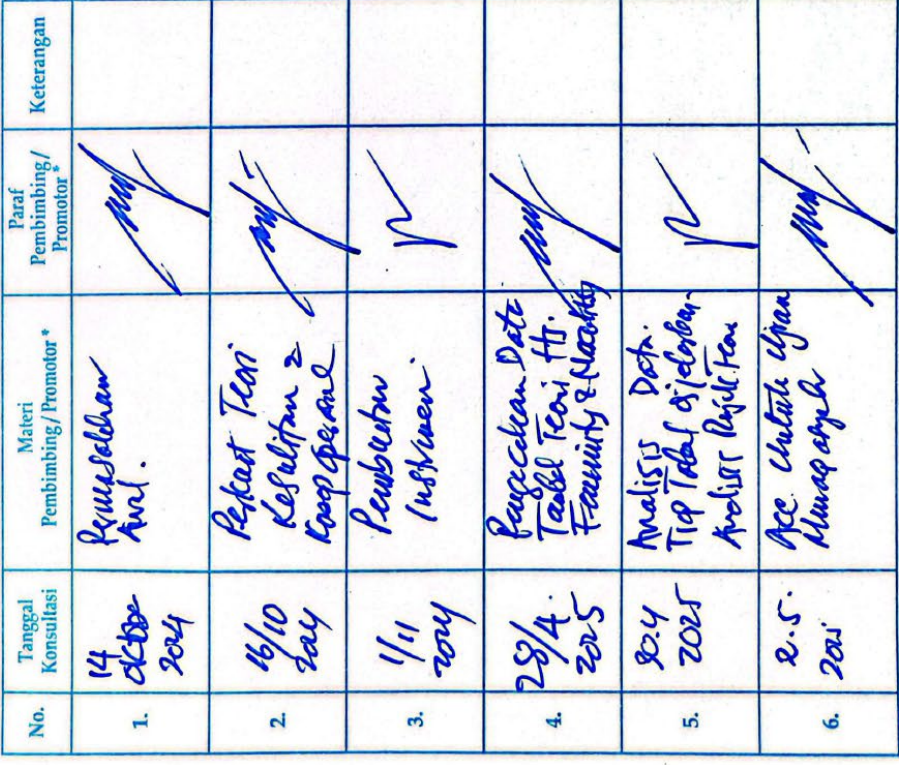 No.
Tanggal
Konsultasi
Materi
Pembimbing / Promotor *
Paraf
Pembimbing /
Promotor *
Keterangan
1.
14
Oktober
2024
Permasalahan
Awal.
2.
16/10
2024
Teori
Kesulitan 2
3.
1/11
2024
Pembuatan
Instrumen.
4.
28/4.
2025
Pengecekan Data
Tabel Teori
5.
30.4
2025
Analisis Data.
Tiap Tabel
Analisis
6.
2.5.
2025
Acc. untuk Ujian
Munaqasyah